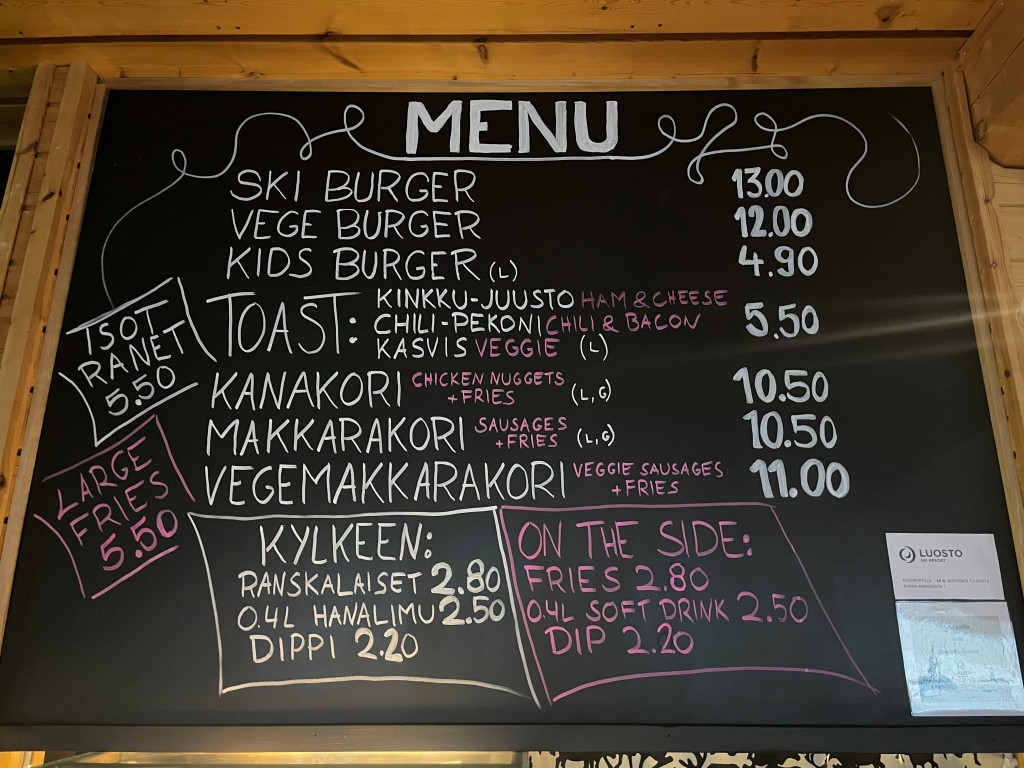 MENU
SKI BURGER 13.00
VEGE BURGER 12.00
KIDS BURGER (L) 4.90
TOAST: KINKKU-JUUSTO HAM & CHEESE
CHILI-PEKONI CHILI & BACON 5.50
KASVIS VEGGIE (L)
KANAKORI CHICKEN NUGGETS + FRIES (L,G) 10.50
MAKKARAKORI SAUSAGES + FRIES (L,G) 10.50
VEGEMAKKARAKORI VEGGIE SAUSAGES + FRIES 11.00
ISOT
RANET
5.50
LARGE
FRIES
5.50
KYLKEEN:
RANSKALAISET 2.80
0.4L HANALIMU 2.50
DIPPI 2.20
ON THE SIDE:
FRIES 2.80
0.4L SOFT DRINK 2.50
DIP 2.20
LUOSTO
SKI RESORT